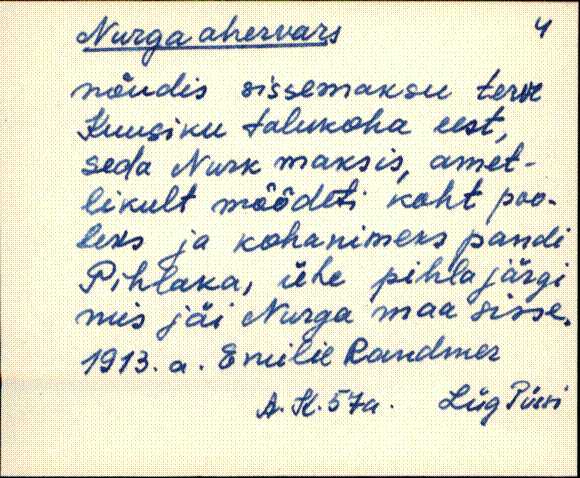 Nurga ahervars 4
nõudis sissemaksu terve
Kuusiku talukoha eest,
seda Nurk maksis, amet-
likult mõõdeti koht poo-
leks ja kohanimeks pandi
Pihlaka, ühe pihla järgi
mis jäi Nurga maa sisse.
1913. a. Emilie Randmer
A. K. 57a. Lüg Püssi